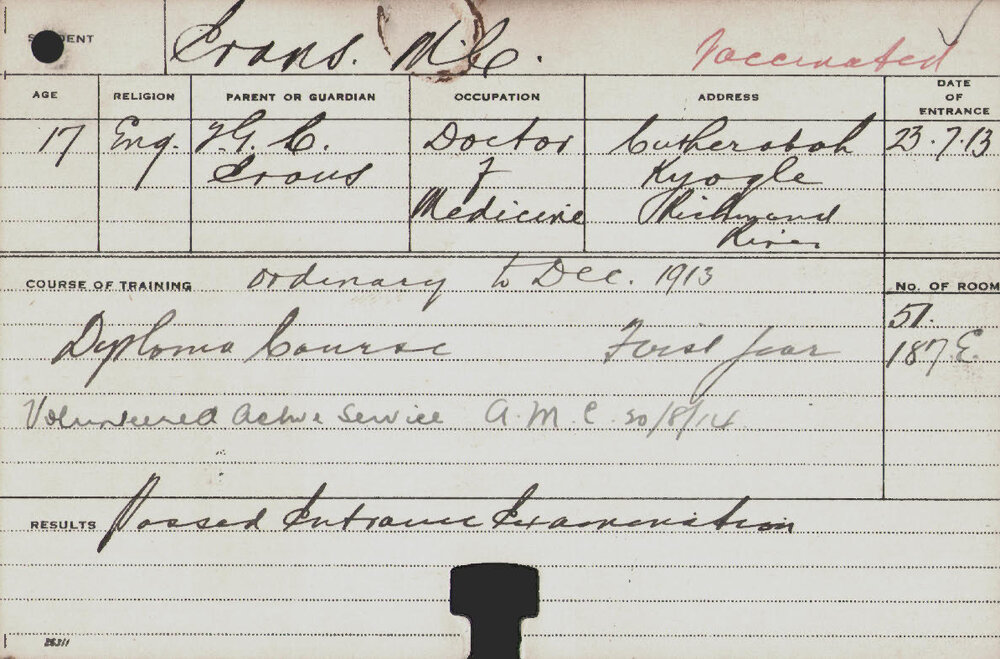 STUDENT Evans. M.C. Vaccinated
AGE RELIGION PARENT OR GUARDIAN OCCUPATION ADDRESS DATE OF ENTRANCE
17 Eng. C. Doctor Cutherabah 23.7.13
Evans of Kyogle
Medicine Richmond
River
COURSE OF TRAINING Ordinary to Dec. 1913 No. OF ROOM
51.
Diploma Course First Year 187 E.
Volunteered Active Service A.M.C. 20/8/14
RESULTS Passed Entrance Examination
26311